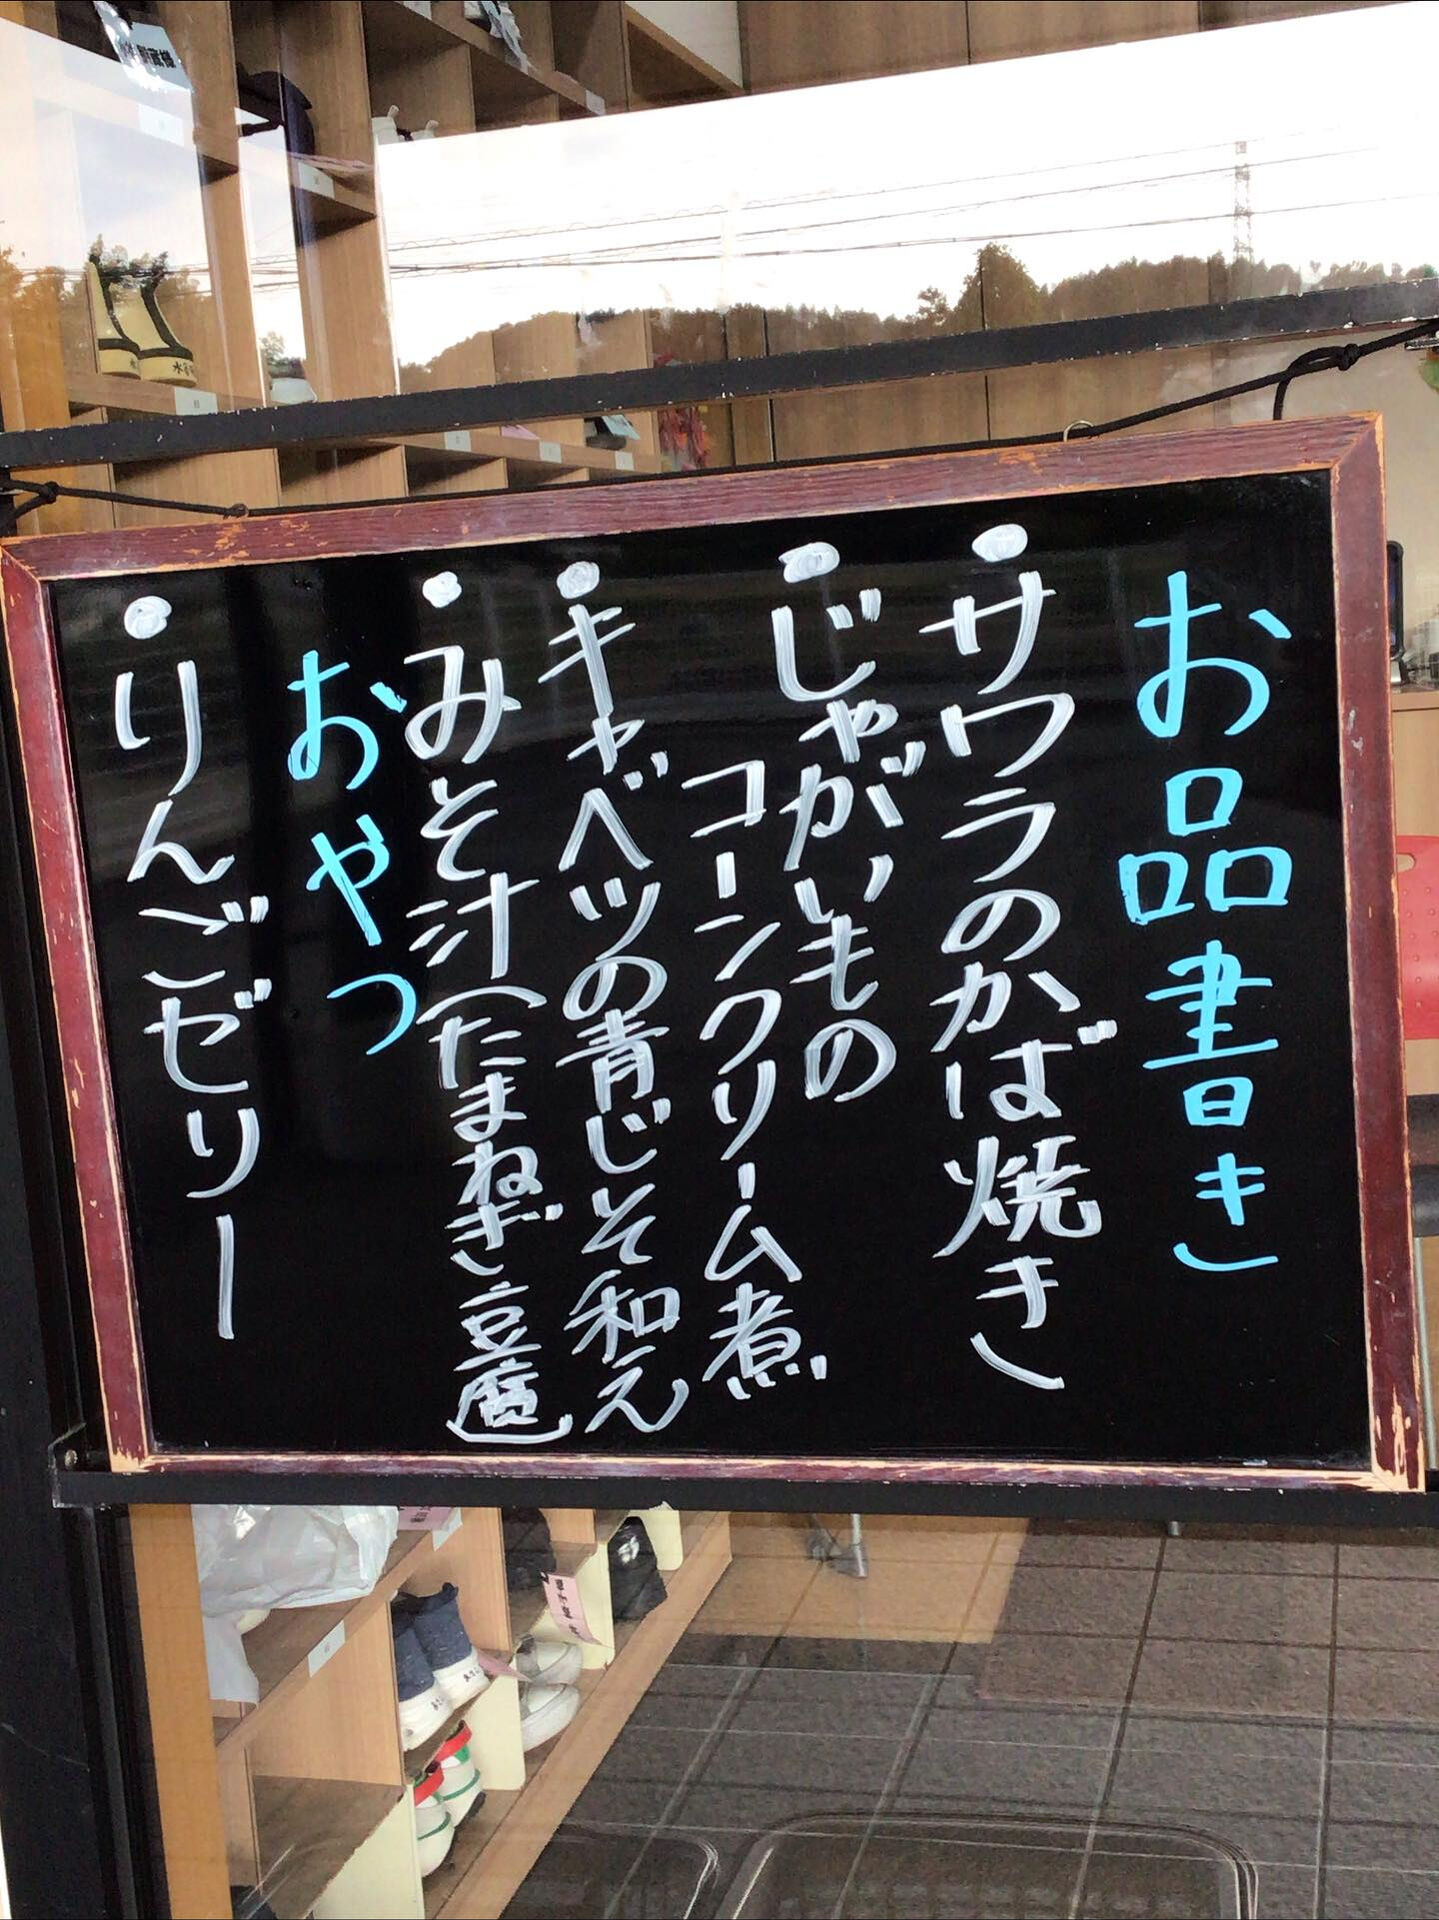 お品書き
サワラのかば焼き
じゃがいもの
コーンクリーム煮
キャベツの青じそ和え
みそ汁(たまねぎ、豆腐)
おやつ
りんごゼリー